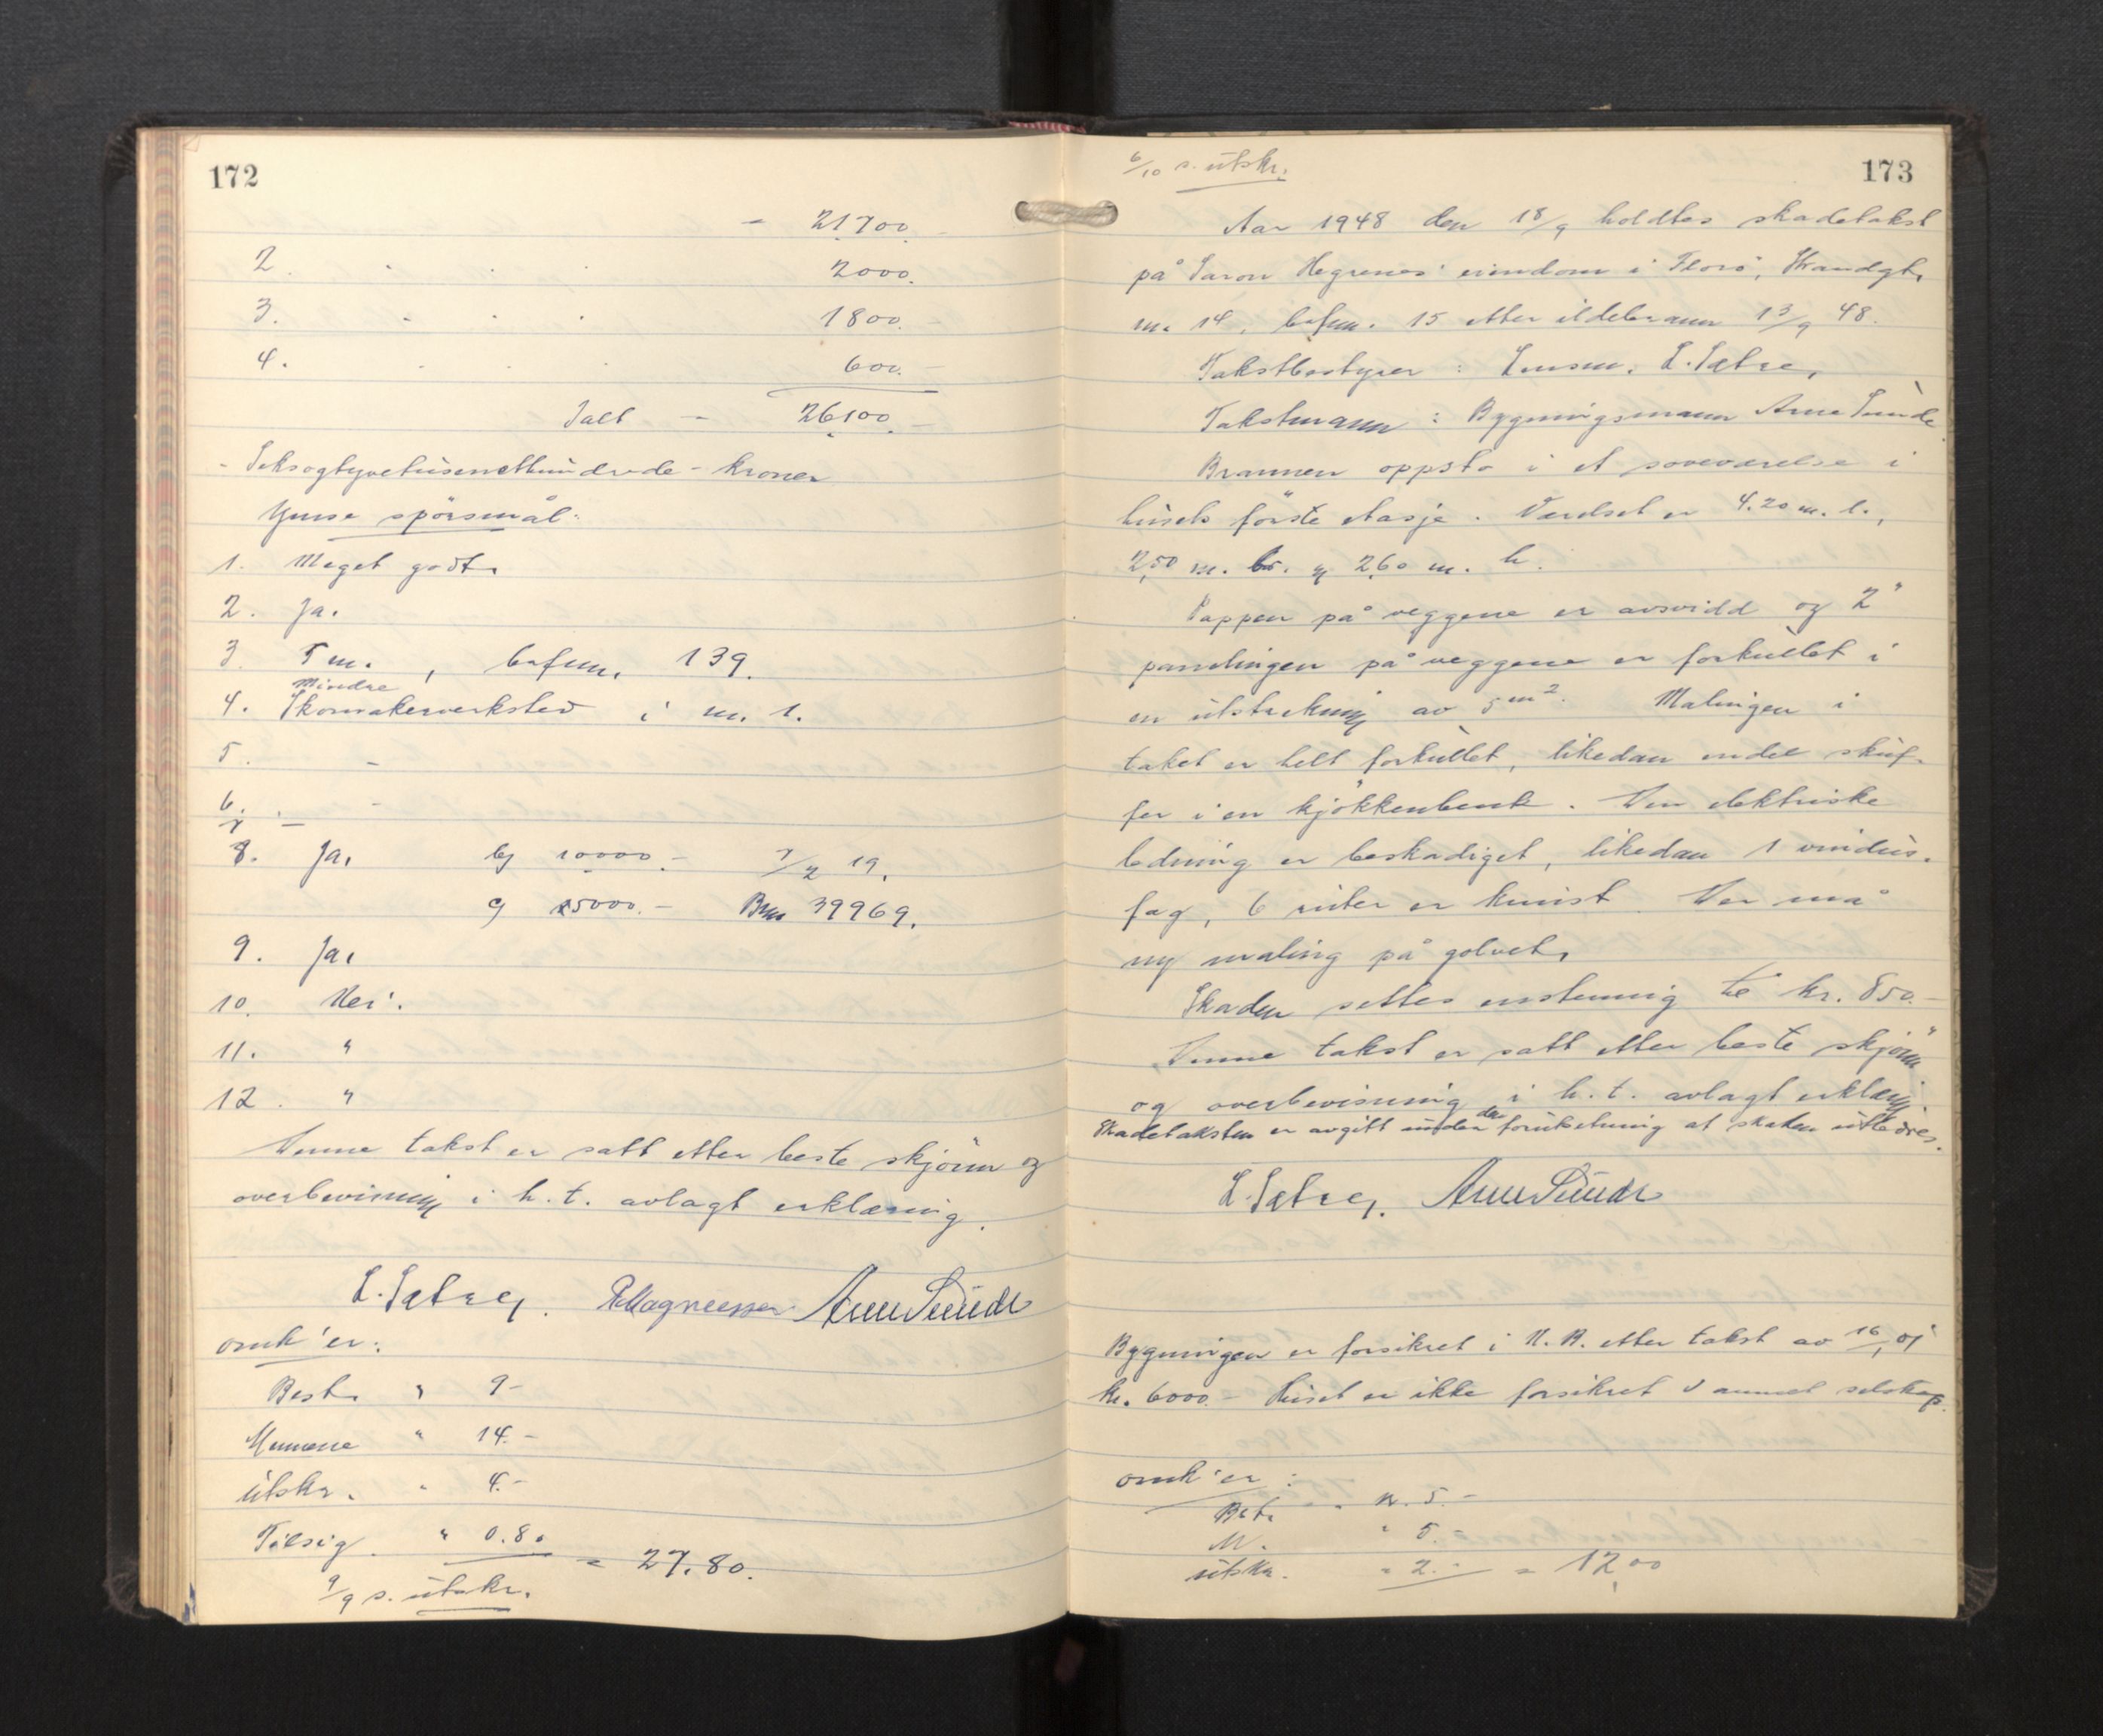 172
- 21700.-
2. " " " 2000.
3. " " " 1800.-
4. " " " 600.-
Ialt - 26100.-
- Seksogtyvetusenetthundrede - kroner
Ymse spörsmål:
1. Meget godt.
2. Ja.
3. 5 m. , bafnr. 139.
Mindre
4. Skomakerverksted i nr. 1.
5. -
6. -
7 -
8. Ja, bg 10000.- 7/2 19.
g 15000.- Bnr 39969.
9. Ja,
10. Nei.
11. "
12. "
Denne takst er satt etter beste skjönn og
overbevisning i h.t. avlagt erklæring.
L. Sætre, Magnussen Arne Sunde
omk'er:
Best. " 9-
Mennene " 14.-
Utskr. " 4.-
Tilsig. " 0.80 = 27.80.
9/9 s. utskr.
6/10 s. utskr.
173
Aar 1948 den 18/9 holdtes skadetakst
på Saron Hegrenes' eiendom i Florö, Strandgt.
nr. 14, bafnr. 15 etter ildebrann 13/9 48.
Takstbestyrer : Lensm. L. Sætre,
Takstmann : Bygningsmann Arne Sunde.
Brannen oppsto i et soveværelse i
husets förste etasje. Værelset er 4.20 m. l.,
2,50 m. br. og 2,60 m. h.
Pappen på veggene er avsvidd og 2"
panelingen på veggene er forkullet i
en utstrekning av 5 m2. Malingen i
taket er helt forkullet, likedan endel skuf-
fer i en kjökkenbenk. Den elektriske
ledning er beskadiget, likedan 1 vindus-
fag, 6 ruter er knust. Der må
ny maling på golvet.
Skaden settes enstemmig til kr. 850.-
Denne takst er satt etter beste skjönn
og overbevisning i h.t. avlagt erklæring.
Skadetaksten er avgitt under den forutsetning at skaden utbedres.
L. Sætre, Arne Sunde
Bygningen er forsikret i N.B. etter takst av 16/1 01
kr. 6000.- Huset er ikke forsikret i annet selskap.
omk'er :
Best. " kr. 5.-
M. " 5.-
utskr. " 2.- = 12,00